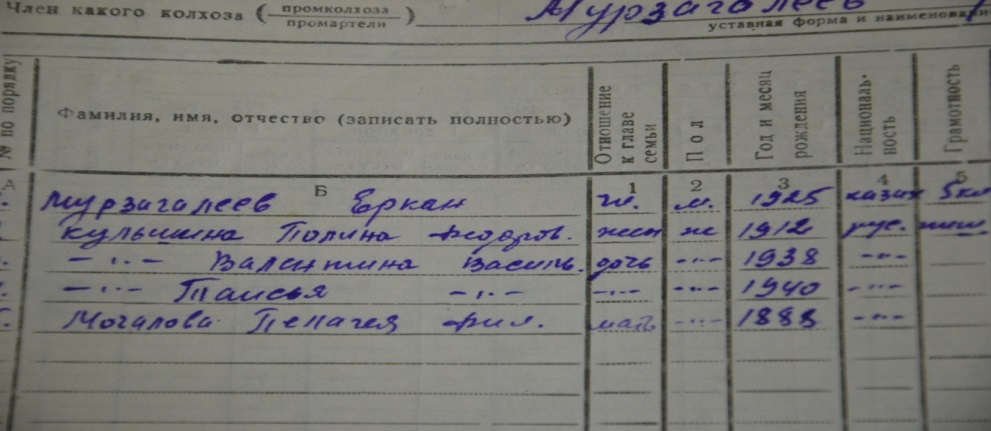 Член какого колхоза (промколхоза промартели) Мурзагалеев
уставная форма и наименовани
№ по порядку
Фамилия, имя, отчество (записать полностью)
Отношение к главе семьи
Пол
Год и месяц рождения
Националь-ность
Грамотность
А Б 1 2 3 4 5
Мурзагалеев Еркан гл. м. 1925 казах 5кл
кульшина Полина Федоров. жен ж 1912 рус.
– " – Валентина Василь. дочь – " – 1938 – " –
– " – Таисья – " – – " – – " – 1940 – " –
Мочалова Пелагея Фил. мать – " – 1883 – " –